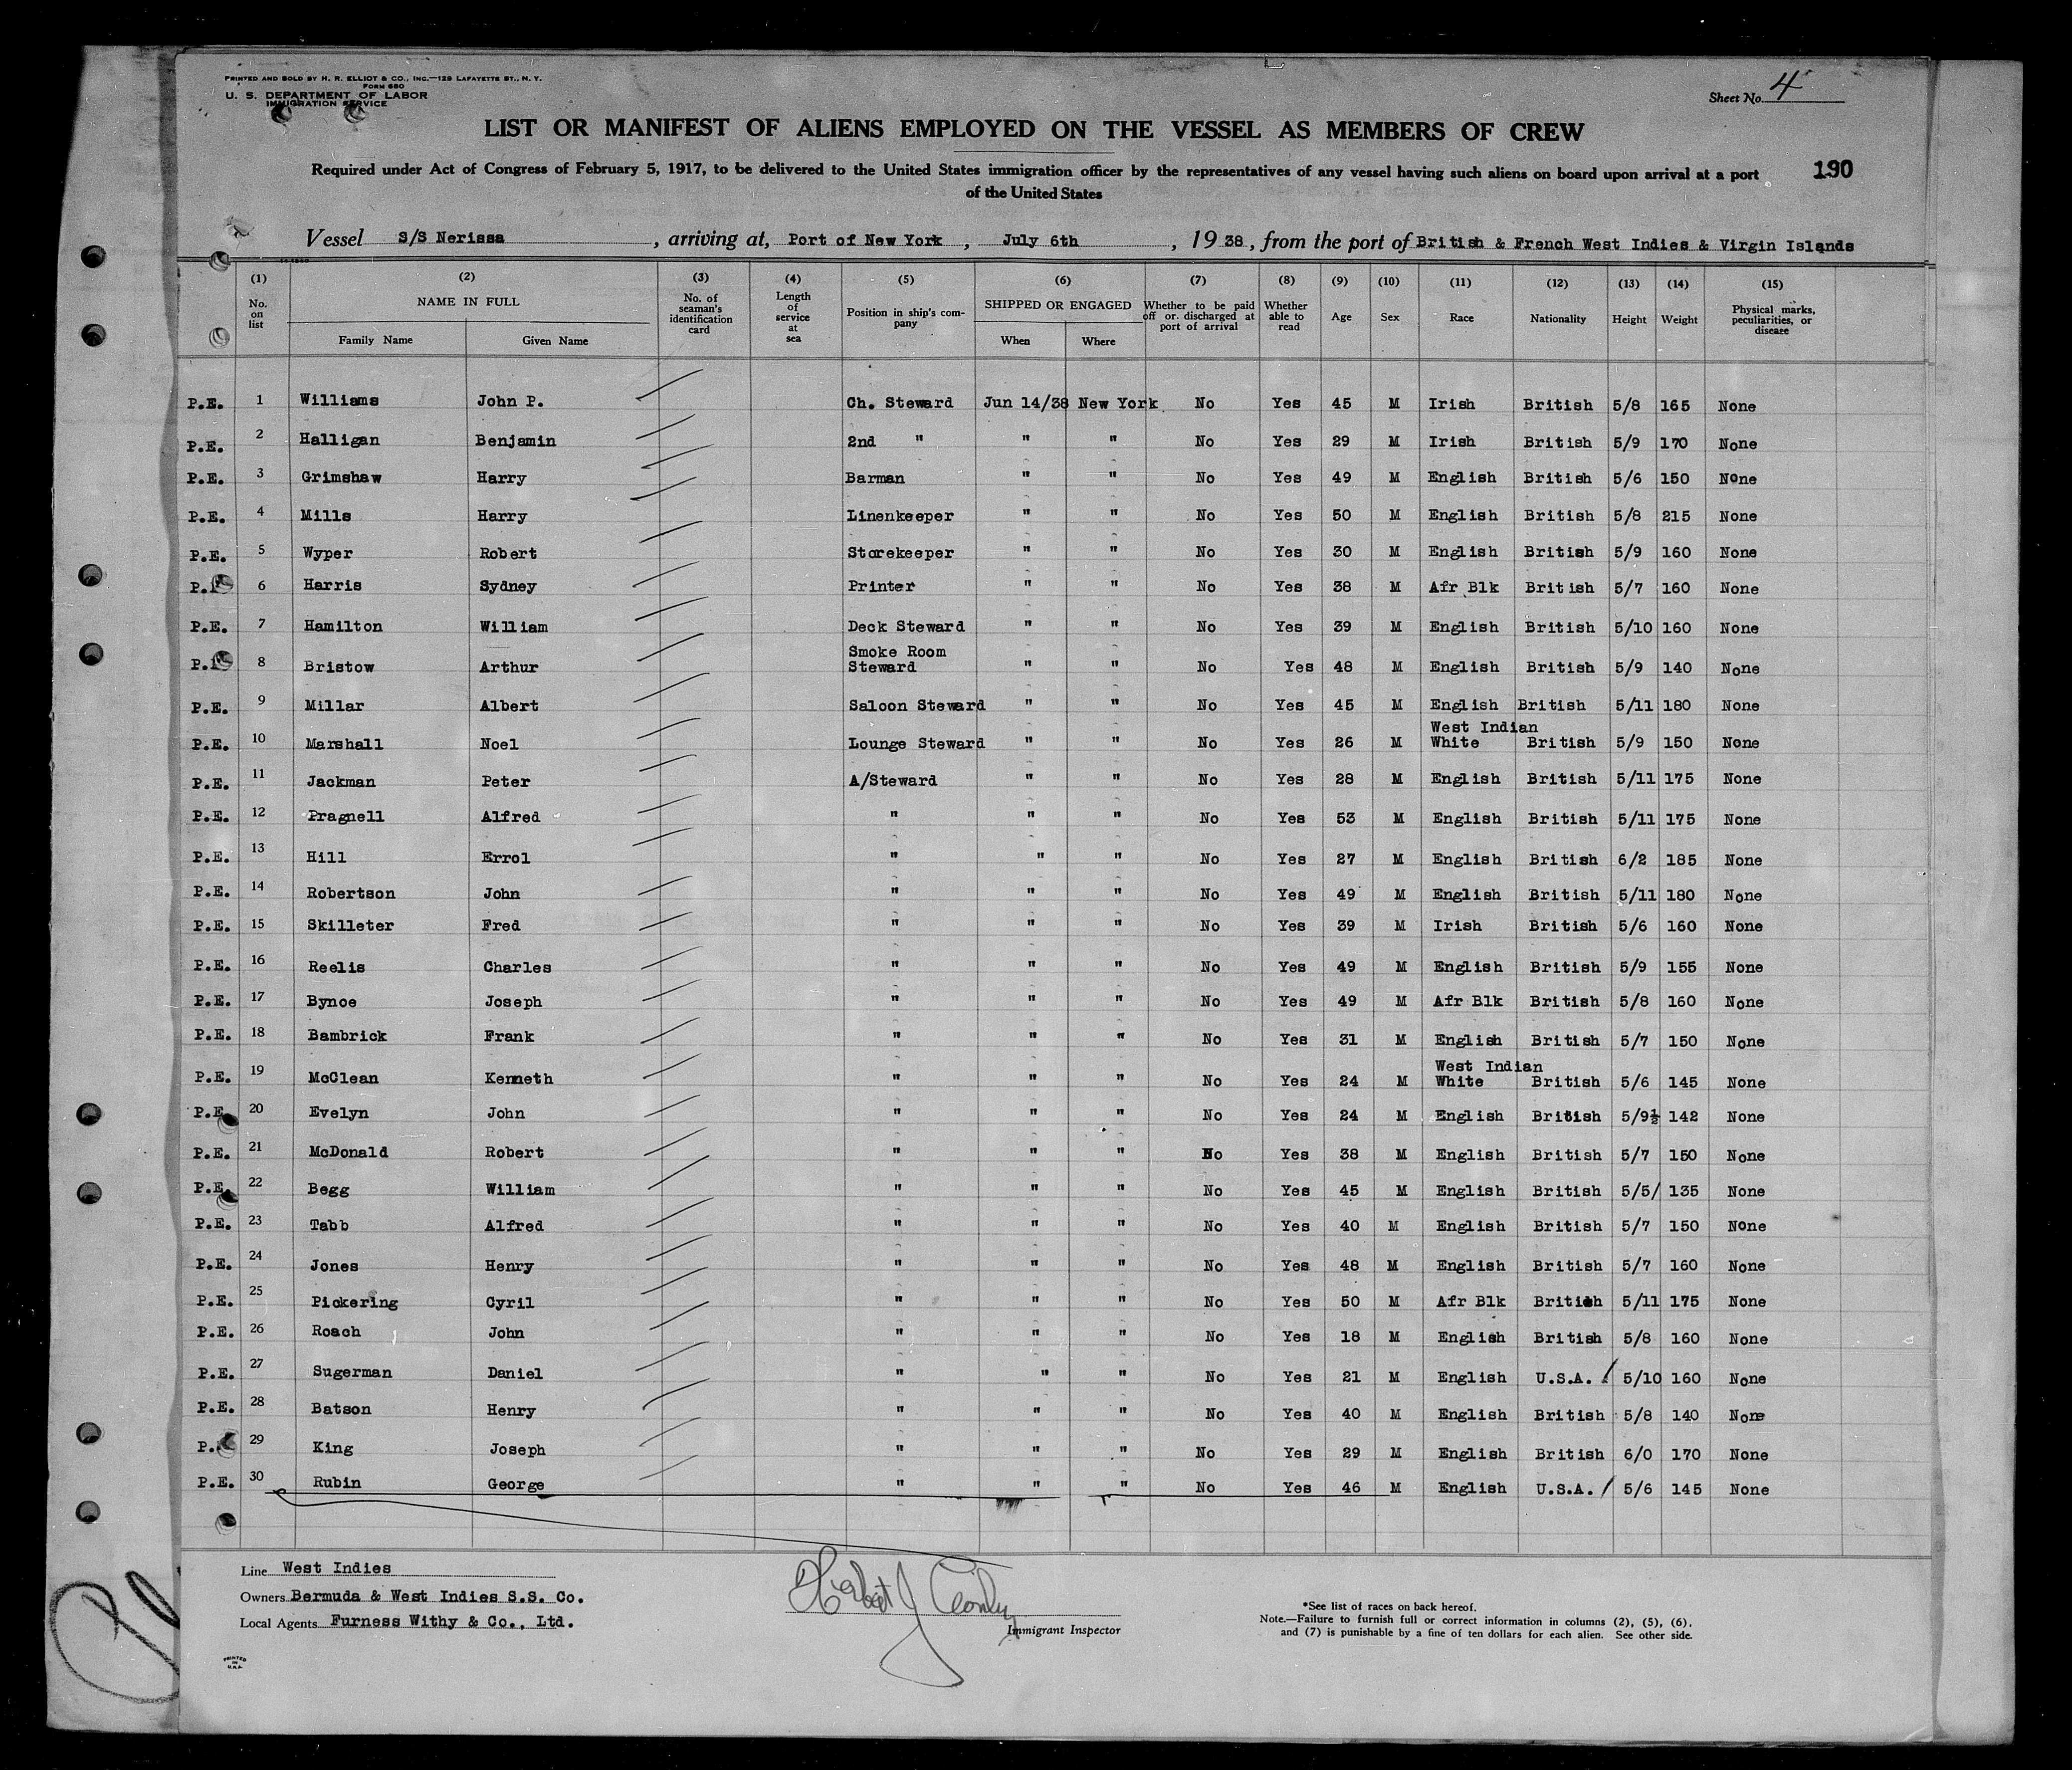 PRINTED AND SOLD BY H. R. ELLIOT & CO., INC.—129 LAFAYETTE ST., N. Y.
FORM 680
U. S. DEPARTMENT OF LABOR
IMMIGRATION SERVICE
Sheet No. 4
LIST OR MANIFEST OF ALIENS EMPLOYED ON THE VESSEL AS MEMBERS OF CREW
Required under Act of Congress of February 5, 1917, to be delivered to the United States immigration officer by the representatives of any vessel having such aliens on board upon arrival at a port
of the United States
190
Vessel S/S Nerissa, arriving at, Port of New York, July 6th, 1938, from the port of British & French West Indies & Virgin Islands
(1) (2) (3) (4) (5) (6) (7) (8) (9) (10) (11) (12) (13) (14) (15)
No. on list NAME IN FULL Family Name Given Name No. of seaman's identification card Length of service at sea Position in ship's company SHIPPED OR ENGAGED When Where Whether to be paid off or discharged at port of arrival Whether able to read Age Sex Race Nationality Height Weight Physical marks, peculiarities, or disease
P.E. 1 Williams John P. Ch. Steward Jun 14/38 New York No Yes 45 M Irish British 5/8 165 None
P.E. 2 Halligan Benjamin 2nd " " " No Yes 29 M Irish British 5/9 170 None
P.E. 3 Grimshaw Harry Barman " " No Yes 49 M English British 5/6 150 None
P.E. 4 Mills Harry Linenkeeper " " No Yes 50 M English British 5/8 215 None
P.E. 5 Wyper Robert Storekeeper " " No Yes 30 M English British 5/9 160 None
P. 6 Harris Sydney Printer " " No Yes 38 M Afr Blk British 5/7 160 None
P.E. 7 Hamilton William Deck Steward " " No Yes 39 M English British 5/10 160 None
P. 8 Bristow Arthur Smoke Room Steward " " No Yes 48 M English British 5/9 140 None
P.E. 9 Millar Albert Saloon Steward " " No Yes 45 M English British 5/11 180 None
P.E. 10 Marshall Noel Lounge Steward " " No Yes 26 M West Indian White British 5/9 150 None
P.E. 11 Jackman Peter A/Steward " " No Yes 28 M English British 5/11 175 None
P.E. 12 Pragnell Alfred " " " No Yes 53 M English British 5/11 175 None
P.E. 13 Hill Errol " " " No Yes 27 M English British 6/2 185 None
P.E. 14 Robertson John " " " No Yes 49 M English British 5/11 180 None
P.E. 15 Skilleter Fred " " " No Yes 39 M Irish British 5/6 160 None
P.E. 16 Reelis Charles " " " No Yes 49 M English British 5/9 155 None
P.E. 17 Bynoe Joseph " " " No Yes 49 M Afr Blk British 5/8 160 None
P.E. 18 Bambrick Frank " " " No Yes 31 M English British 5/7 150 None
P.E. 19 McClean Kenneth " " " No Yes 24 M West Indian White British 5/6 145 None
P.E. 20 Evelyn John " " " No Yes 24 M English British 5/9½ 142 None
P.E. 21 McDonald Robert " " " No Yes 38 M English British 5/7 150 None
P.E. 22 Begg William " " " No Yes 45 M English British 5/5/ 135 None
P.E. 23 Tabb Alfred " " " No Yes 40 M English British 5/7 150 None
P.E. 24 Jones Henry " " " No Yes 48 M English British 5/7 160 None
P.E. 25 Pickering Cyril " " " No Yes 50 M Afr Blk British 5/11 175 None
P.E. 26 Roach John " " " No Yes 18 M English British 5/8 160 None
P.E. 27 Sugerman Daniel " " " No Yes 21 M English U.S.A. 5/10 160 None
P.E. 28 Batson Henry " " " No Yes 40 M English British 5/8 140 None
P. 29 King Joseph " " " No Yes 29 M English British 6/0 170 None
P.E. 30 Rubin George " " " No Yes 46 M English U.S.A. 5/6 145 None
Line West Indies
Owners Bermuda & West Indies S.S. Co.
Local Agents Furness Withy & Co., Ltd.
Immigrant Inspector
*See list of races on back hereof.
Note.—Failure to furnish full or correct information in columns (2), (5), (6),
and (7) is punishable by a fine of ten dollars for each alien. See other side.
PRINTED
IN
U.S.A.